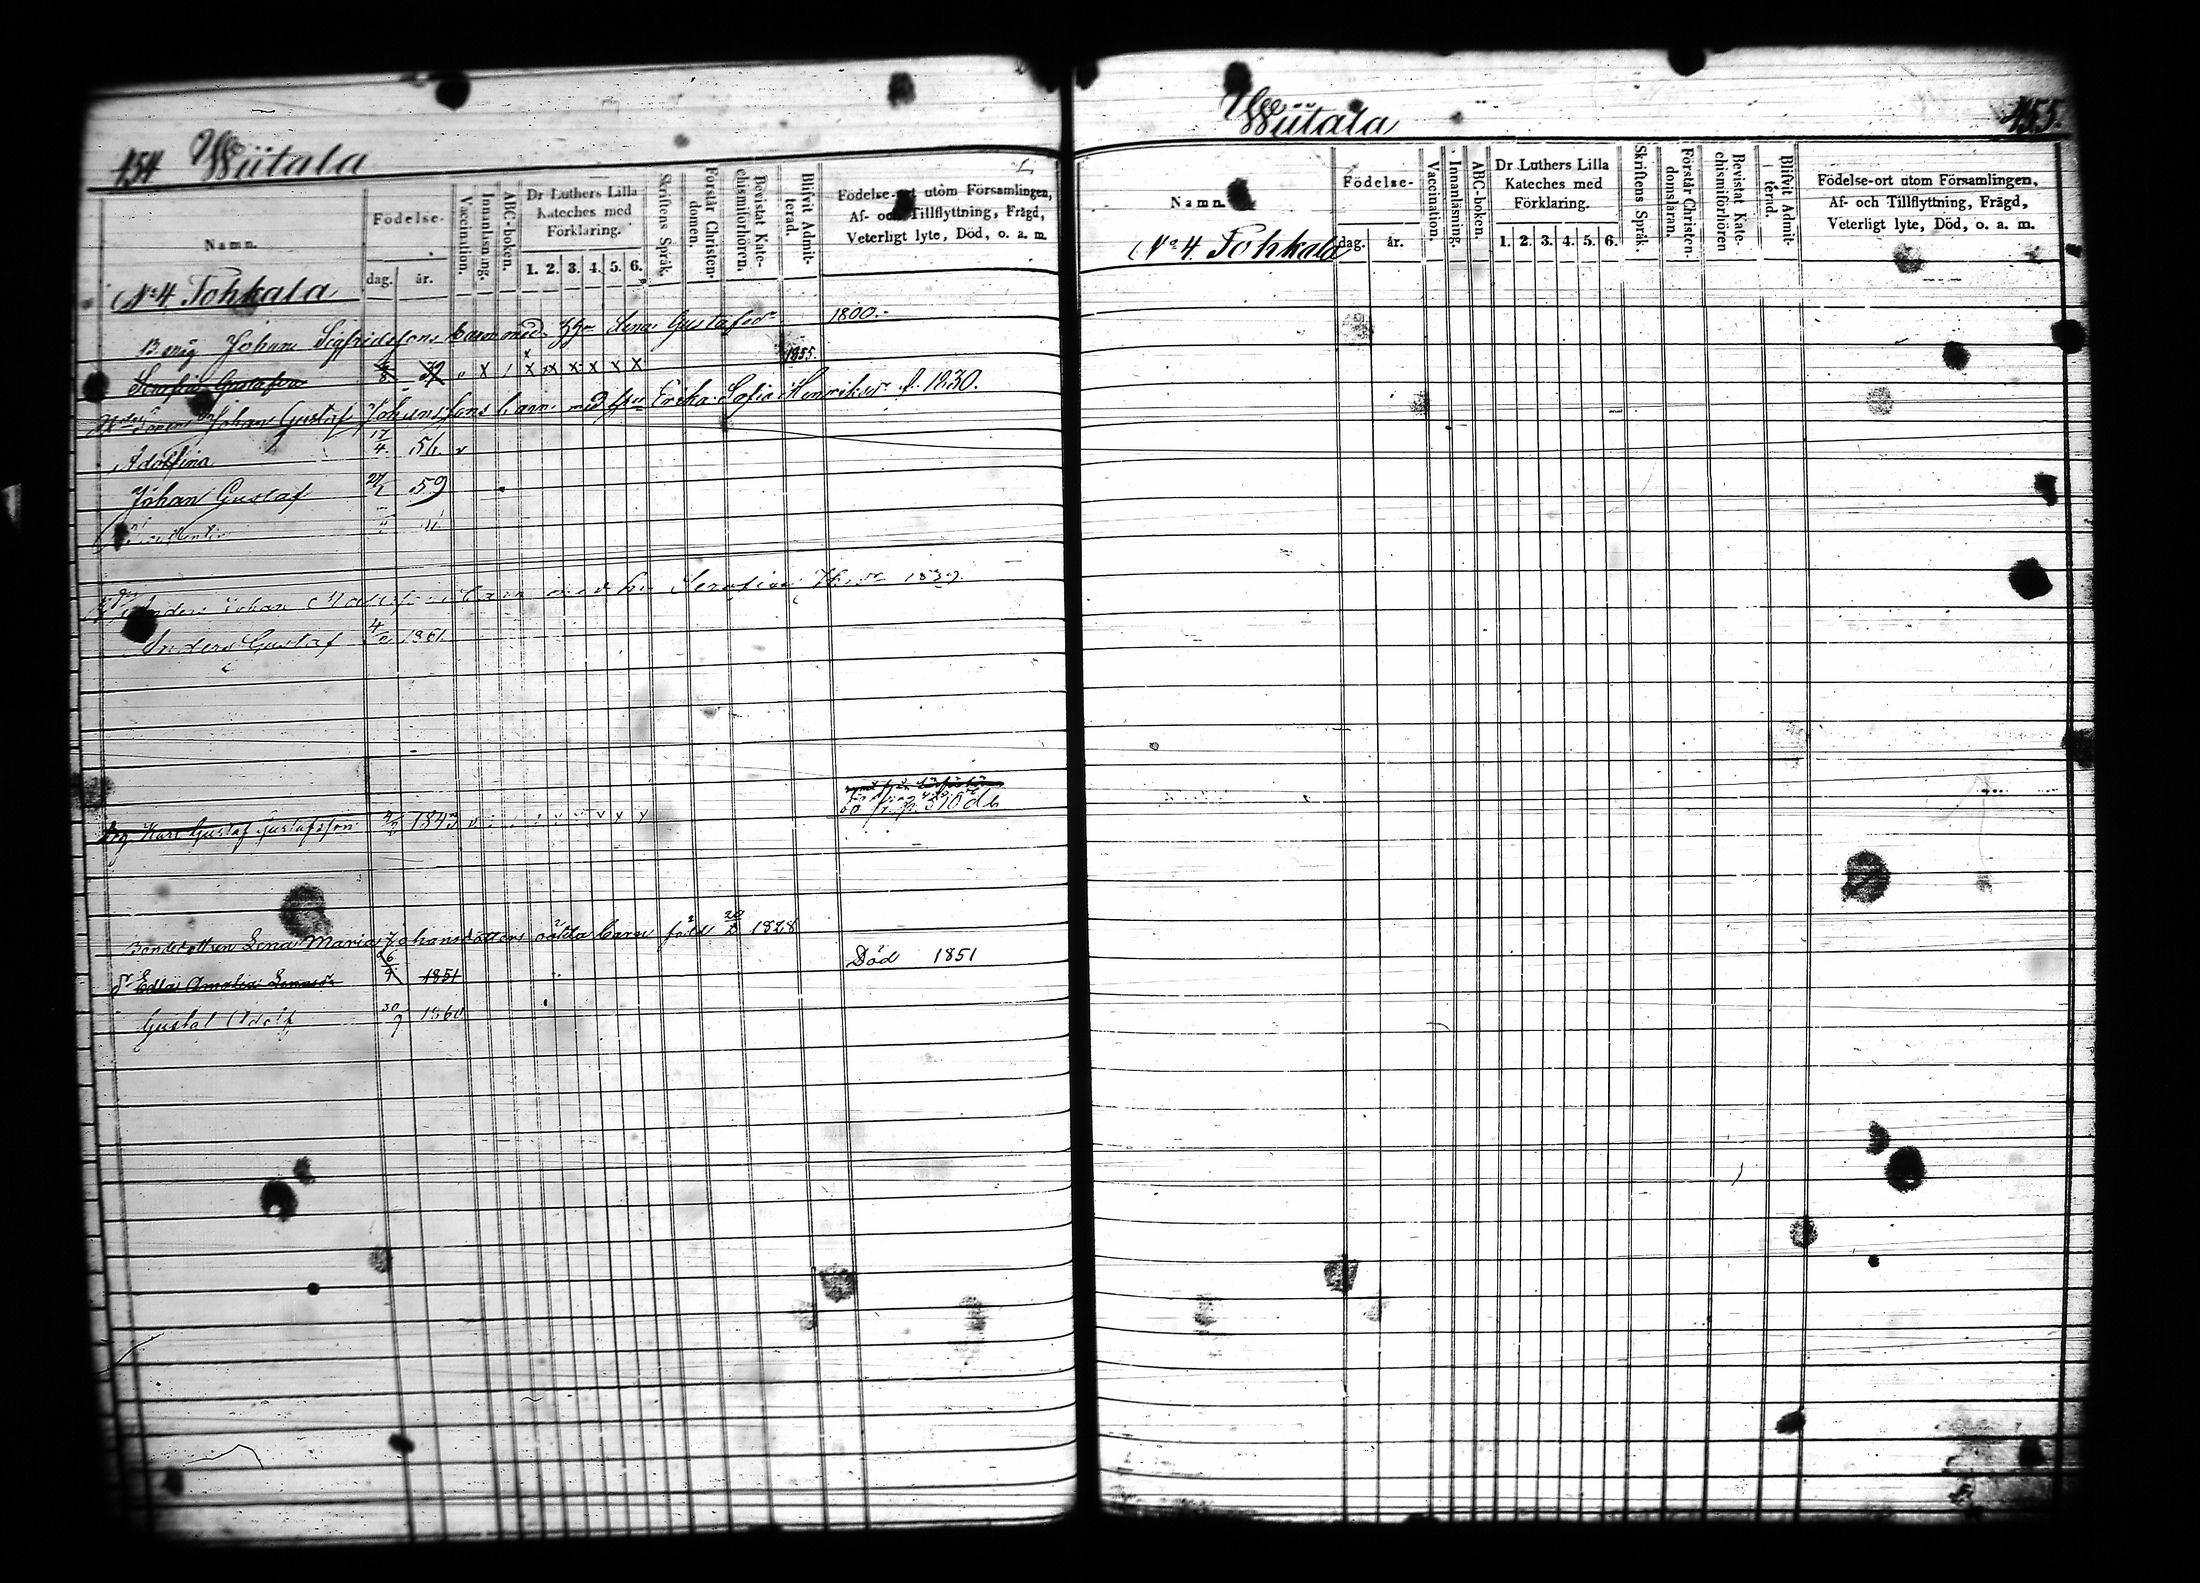 454 Wiitala
Namn.
Födelse-
dag. år.
Vaccination.
Innanläsning.
ABC-boken.
Dr Luthers Lilla Kateches med Förklaring.
1. 2. 3. 4. 5. 6.
Skriftens Språk.
Förstår Christendomen.
Bevistat Katechismiförhören.
Blifvit Admitterad.
Födelse-ort utom Församlingen,
Af- och Tillflyttning, Frägd,
Veterligt lyte, Död, o. a. m.
No 4 Tohkala
Johan Sigfridssons barn med Lena Gustafsdr 1800.
Serafina Gustafva 8 39 x x x x x x x 1855.
Johan Gustaf Johanssons barn med Erika Sofia Henriksdr f. 1830.
Adolfina 17/4 56 v
Johan Gustaf 59
Anders Johan barn med Serafina 1839.
Anders Gustaf 1861
Karl Gustaf Gustafsson 1843 v v y y
Bondedottren Lena Maria Johansdotters oäkta barn född 20/2 1828
Edla Amalia 26/9 1851 Död 1851
Gustaf Adolf 30/9 1860
Wiitala 455.
Namn.
Födelse-
dag. år.
Vaccination.
Innanläsning.
ABC-boken.
Dr Luthers Lilla Kateches med Förklaring.
1. 2. 3. 4. 5. 6.
Skriftens Språk.
Förstår Christendomsläran.
Bevistat Katechismiförhören
Blifvit Admitterad.
Födelse-ort utom Församlingen,
Af- och Tillflyttning, Frägd,
Veterligt lyte, Död, o. a. m.
No 4 Tohkala